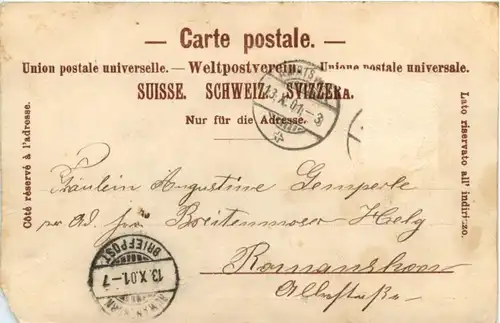 — Carte postale. —
Union postale universelle. — Weltpostverein. — Unione postale universale.
SUISSE. SCHWEIZ. SVIZZERA.
Nur für die Adresse.
Côté réservé à l'adresse.
Lato riservato all' indirizzo.
13.X.01.-3
Fräulein Augustine Gemperle
per Ad. Breitenmoser-Helg
Romanshorn
BRIEFPOST
13.X.01.-7
ROMANSHORN